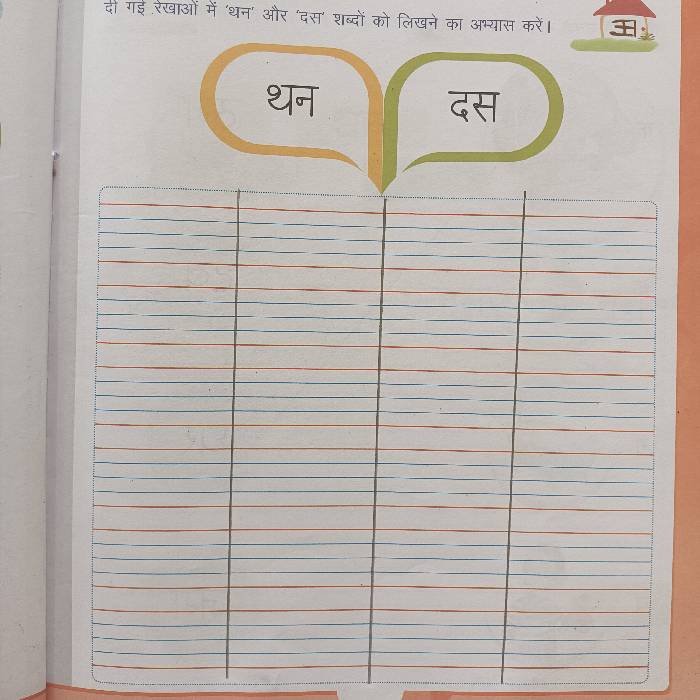 दी गई रेखाओं में 'थन' और 'दस' शब्दों को लिखने का अभ्यास करें।
थन
दस